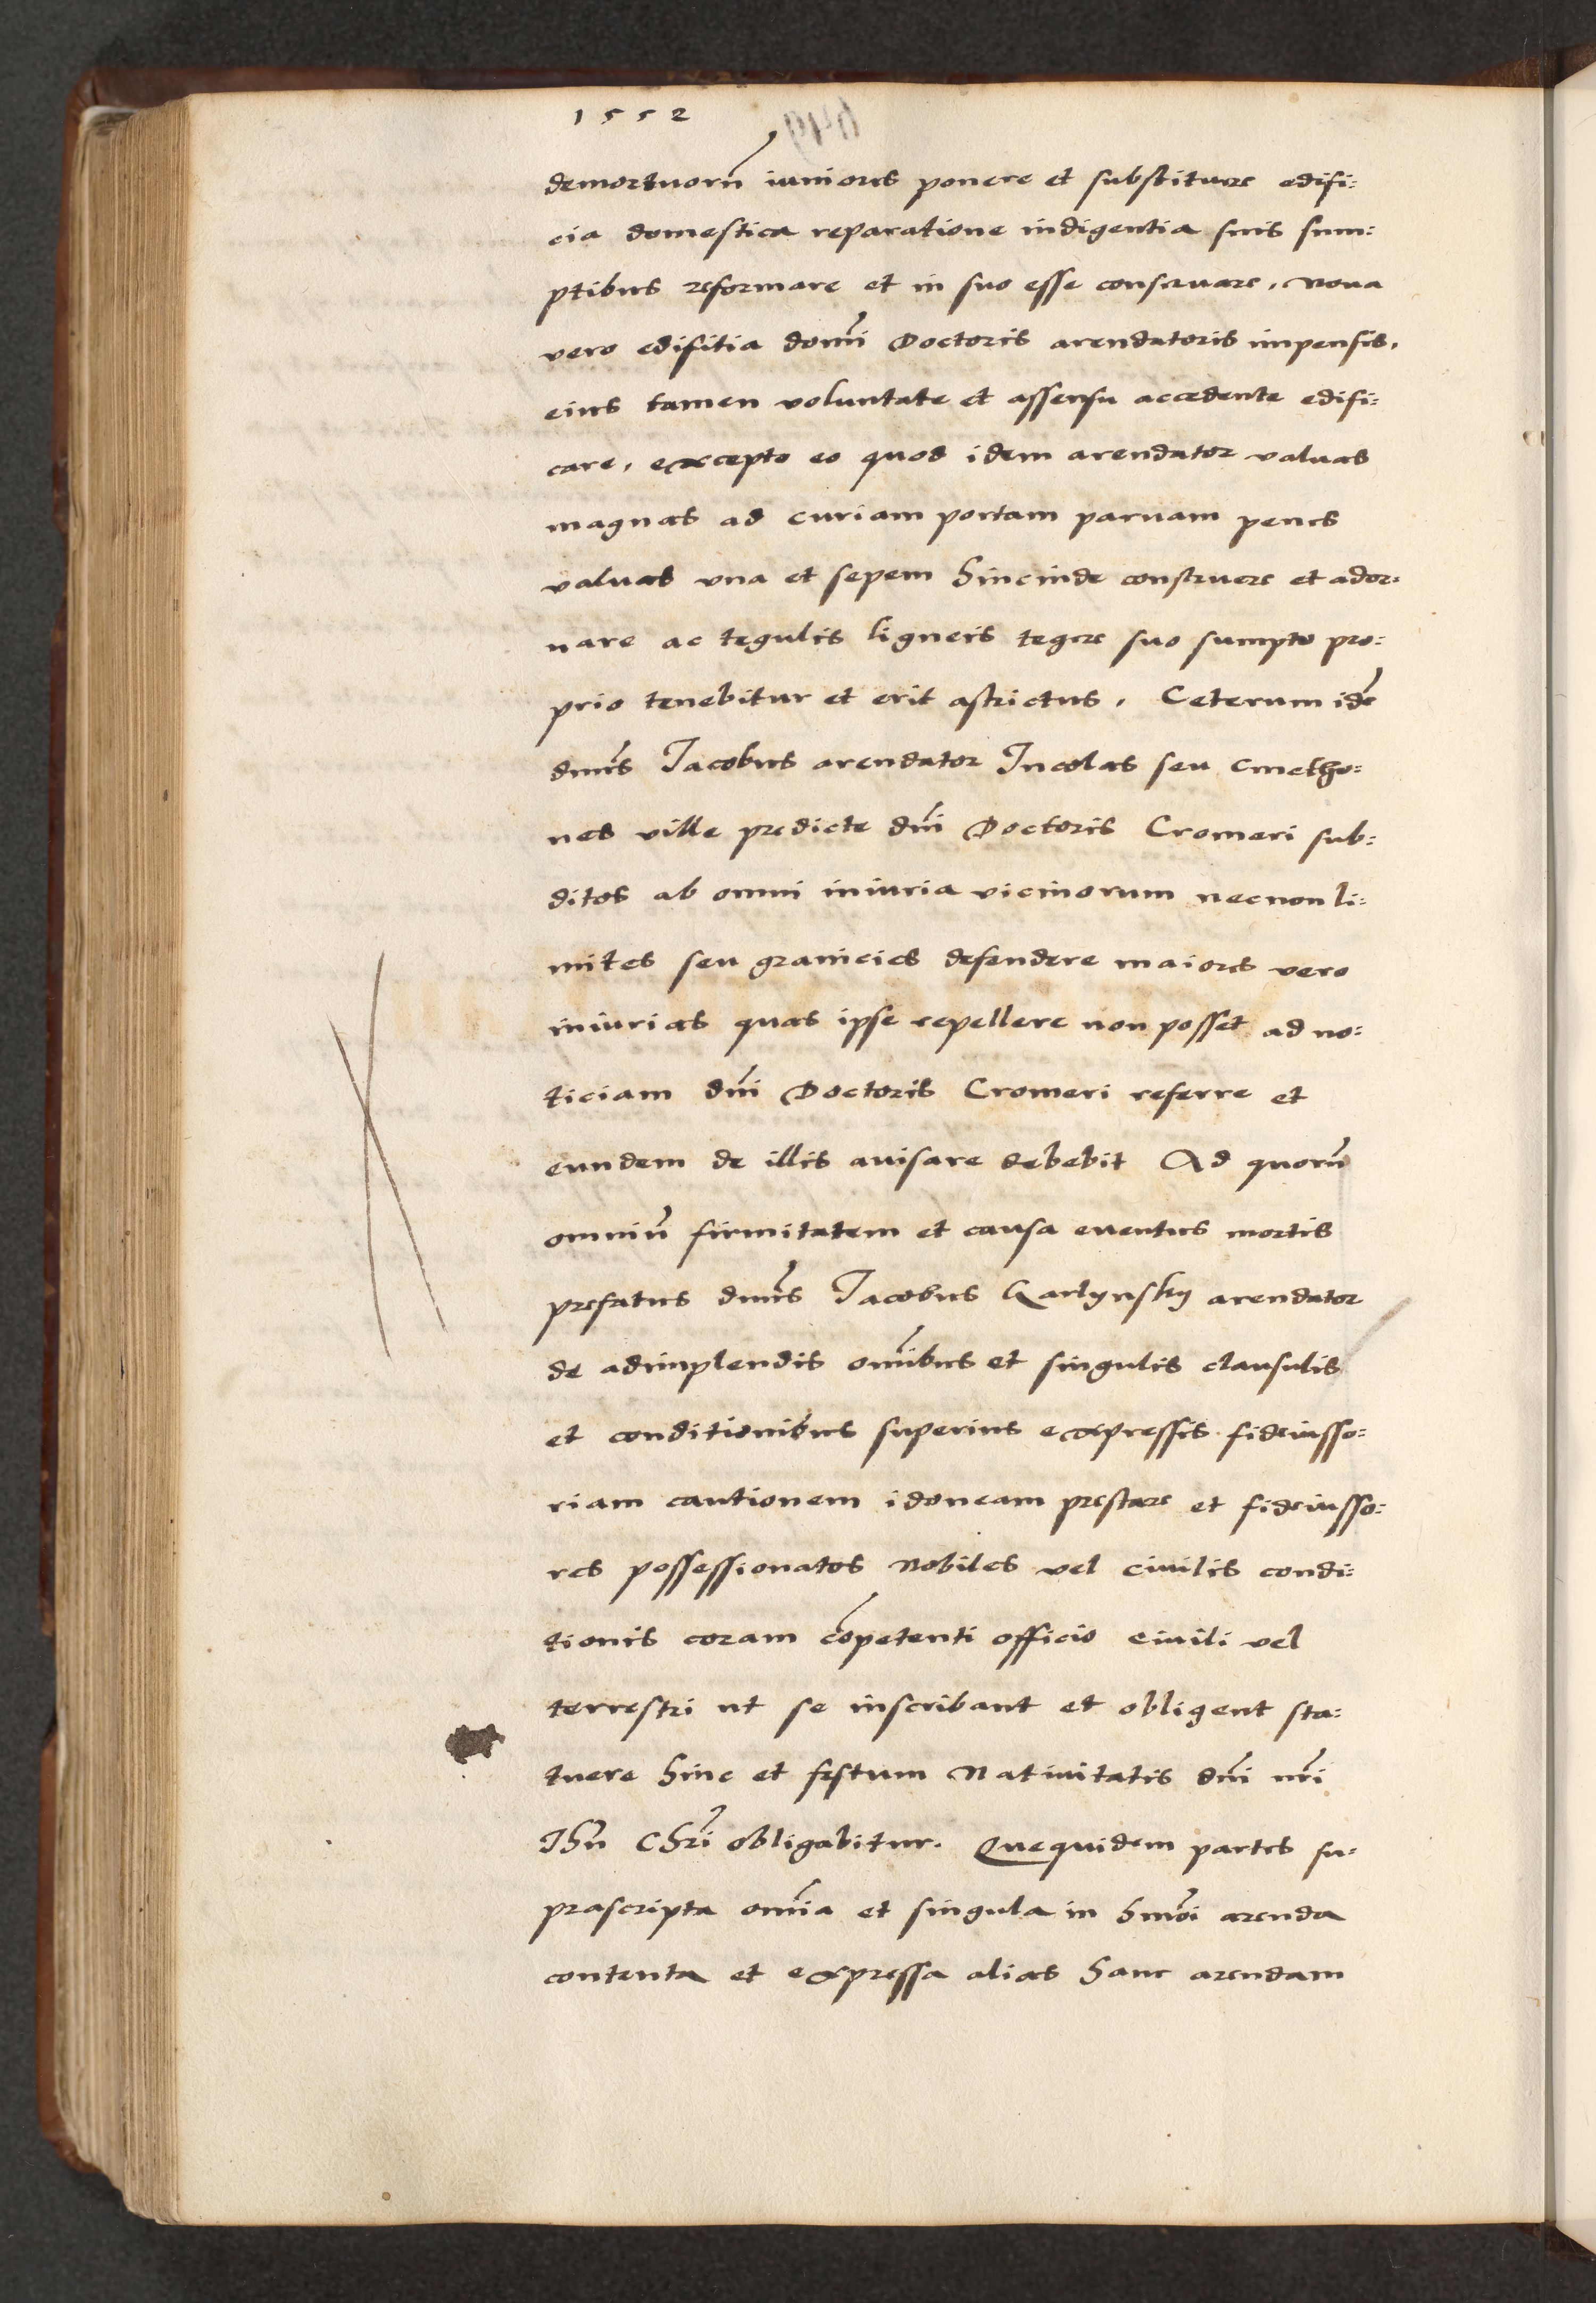 1552
demortuorũ iuniores ponere et substituere edifi:
cia domestica reparatione indigentia suis sum:
ptibus reformare et in suo esse conseruare, noua
vero edifitia domĩ Doctoris arendatoris impensis,
eius tamen voluntate et assensu accedente edifi:
care, excepto eo quod idem arendator valuas
magnas ad curiam portam paruam penes
valuas vna et sepem hincinde construere et ador:
nare ac tegulis ligneis tegere suo sumpto pro:
prio tenebitur et erit astrictus, Ceterum idẽ
dnũs Jacobus arendator Incolas seu cmetho:
nes ville predicte dnĩ Doctoris Cromeri sub:
ditos ab omni iniuria vicinorum necnon li:
mites seu granicies defendere maiores vero
iniurias quas ipse repellere non posset ad no:
ticiam dnĩ Doctoris Cromeri referre et
eundem de illis auisare debebit Ad quorũ
omniũ firmitatem et causa euentus mortis
prefatus dnũs Jacobus Karlynsky arendator
de adimplendis omĩbus et singulis clausulis
et conditionibus superius expressis fideiusso:
riam cautionem idoneam prestare et fideiusso:
res possessionatos nobiles vel ciuilis condi:
tionis coram cõpetenti officio ciuili vel
terrestri ut se inscribant et obligent sta:
tuere hinc et festum Natiuitatis dnĩ nrĩ
Jhũ Chrĩ obligabitur. Quequidem partes su:
prascripta omĩa et singula in hmõi arenda
contenta et expressa alias hanc arendam